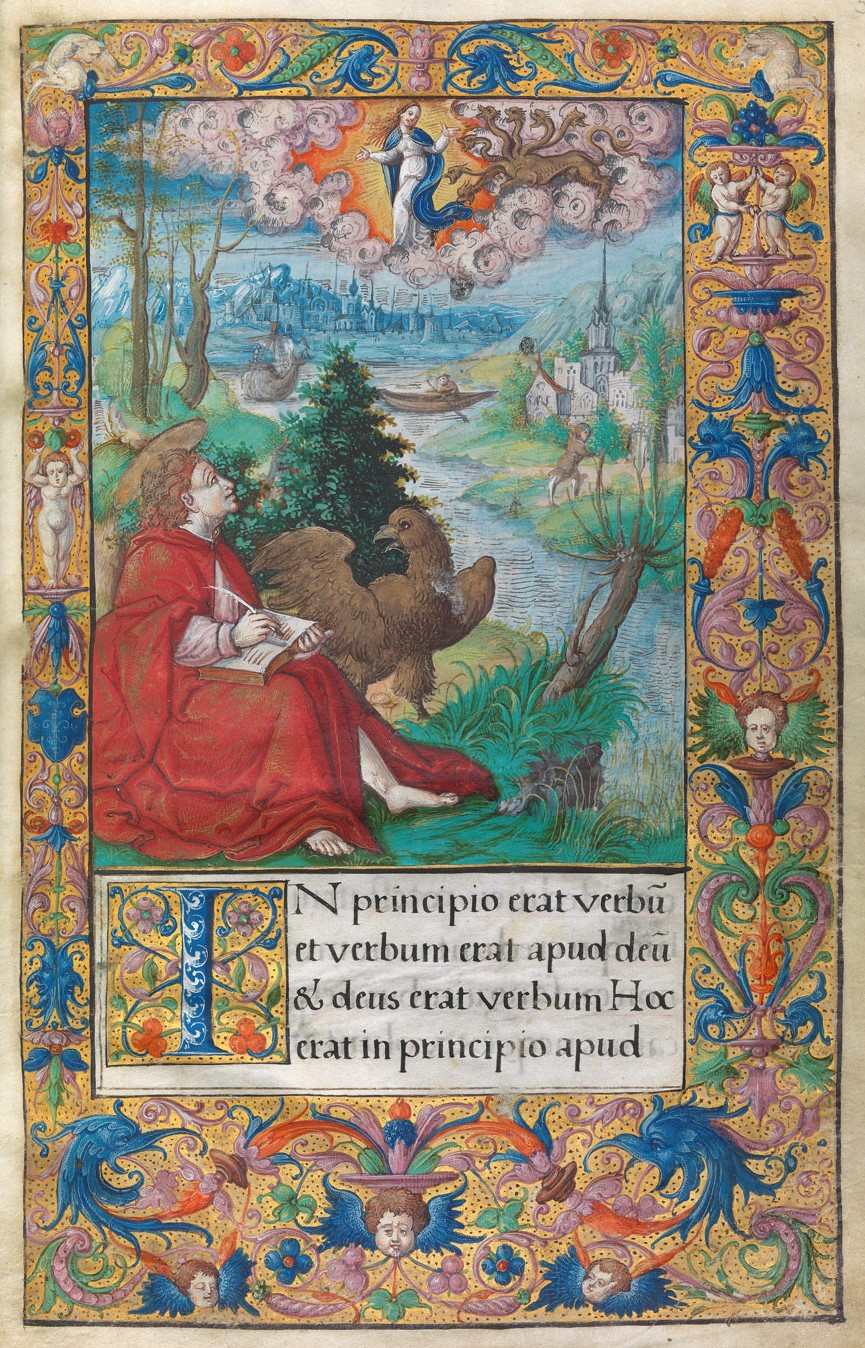 IN principio erat verbū
et verbum erat apud deū
& deus erat verbum Hoc
erat in principio apud